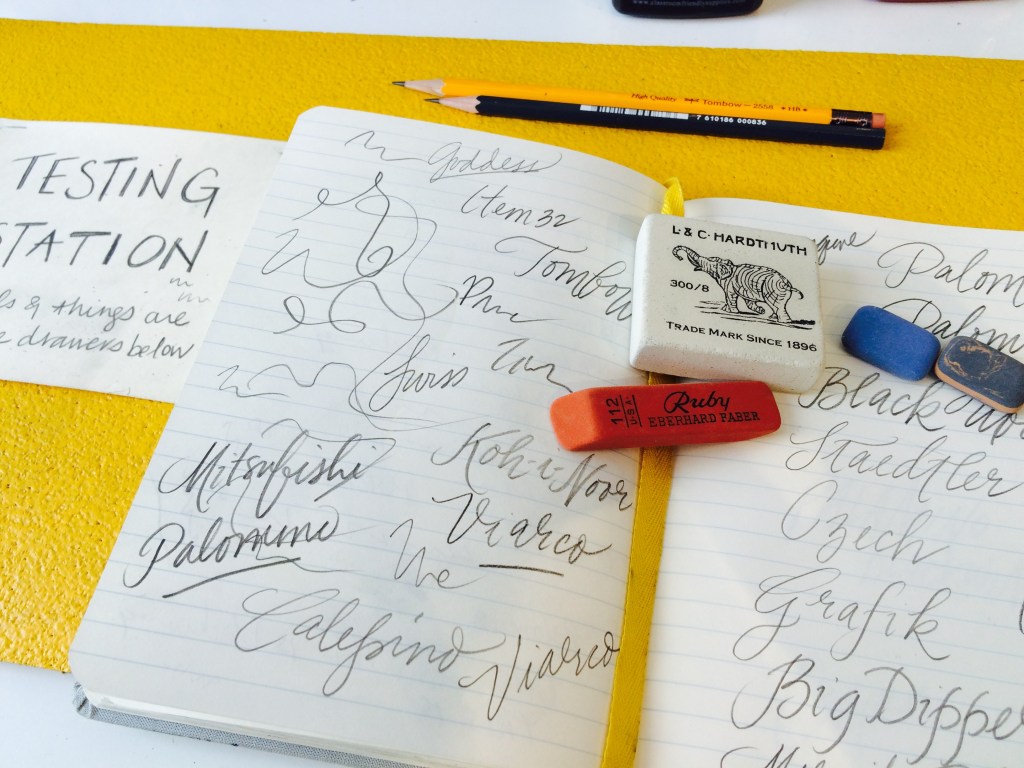 TESTING
STATION
& things are
drawers below
High Quality Tombow-2558 HB
7 610186 000836
Goddess
Item 32
Tombow
Swiss
Mitsubishi
Koh-i-Noor
Palomino
Viarco
Calepino
Viarco
L·& C·HARDTMUTH
300/8
TRADE MARK SINCE 1896
112
U·S·A
Ruby
EBERHARD FABER
Palom
Palom
Black
Staedtler
Czech
Grafik
Big Dipper